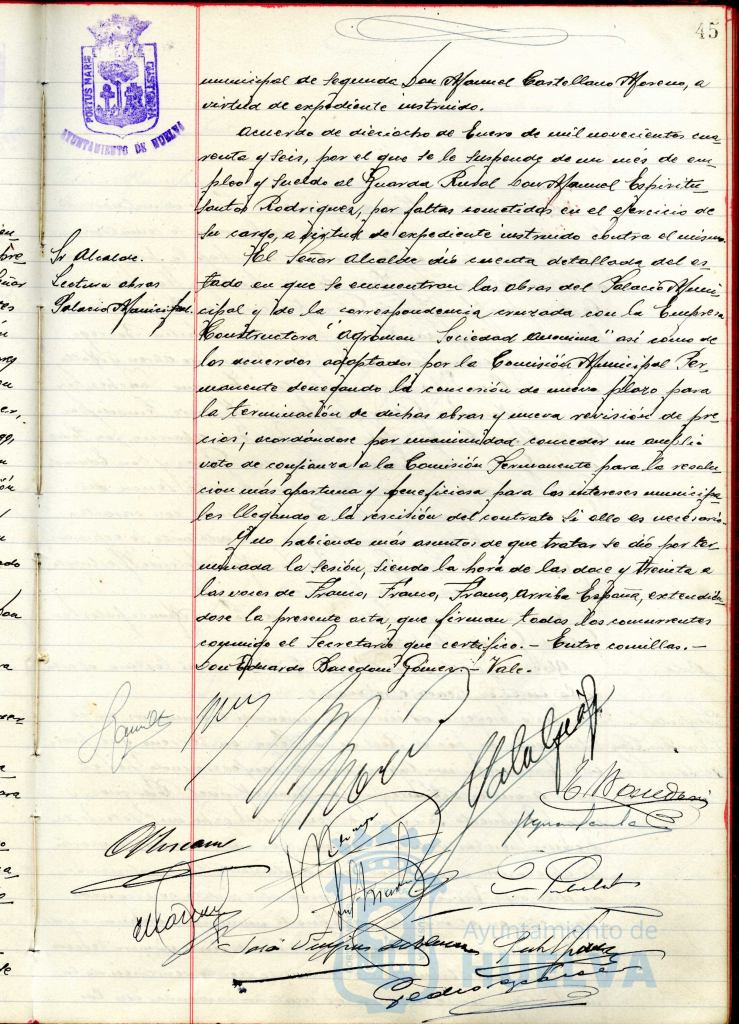 45
PORTUS MARIS
AYUNTAMIENTO DE HUELVA
municipal de segunda Don Manuel Castellano Moreno, a
virtud de expediente instruido.
Acuerdo de dieciocho de Enero de mil novecientos cua-
renta y seis, por el que se le suspende de un mes de em-
pleo y sueldo al Guarda Rural Don Manuel Espiritu
Santos Rodriguez, por faltas cometidas en el ejercicio de
su cargo, a virtud de expediente instruido contra el mismo.
Sr Alcalde.
Lectura obras
Palacio Municipal.
El Señor Alcalde dió cuenta detallada del es-
tado en que se encuentran las obras del Palacio Muni-
cipal y de la correspondencia cruzada con la Empresa
Constructora "Agroman Sociedad Anonima" asi como de
los acuerdos adoptados por la Comisión Municipal Per-
manente denegando la concesión de nuevo plazo para
la terminación de dichas obras y nueva revisión de pre-
cios; acordándose por unanimidad conceder un amplio
voto de confianza a la Comisión Permanente para la resolu-
cion más oportuna y beneficiosa para los intereses municipa-
les llegando a la rescisión del contrato si ello es necesario.
Y no habiendo más asuntos de que tratar se dió por ter-
minada la sesión, siendo la hora de las doce y treinta a
las voces de Franco, Franco, Franco, Arriba España, extendién-
dose la presente acta, que firman todos los concurrentes
conmigo el Secretario que certifico.- Entre comillas.-
Don Eduardo Gómez.- Vale.
Ayuntamiento de
HUELVA